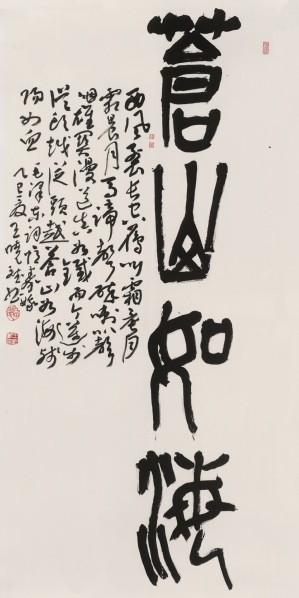 蒼山如海
西風烈長空雁叫霜晨月
霜晨月馬蹄聲碎喇叭聲
咽雄關漫道真如鐵而今邁步
從頭越從頭越蒼山如海殘
陽如血
毛澤東詞憶秦娥
乙巳夏王曉